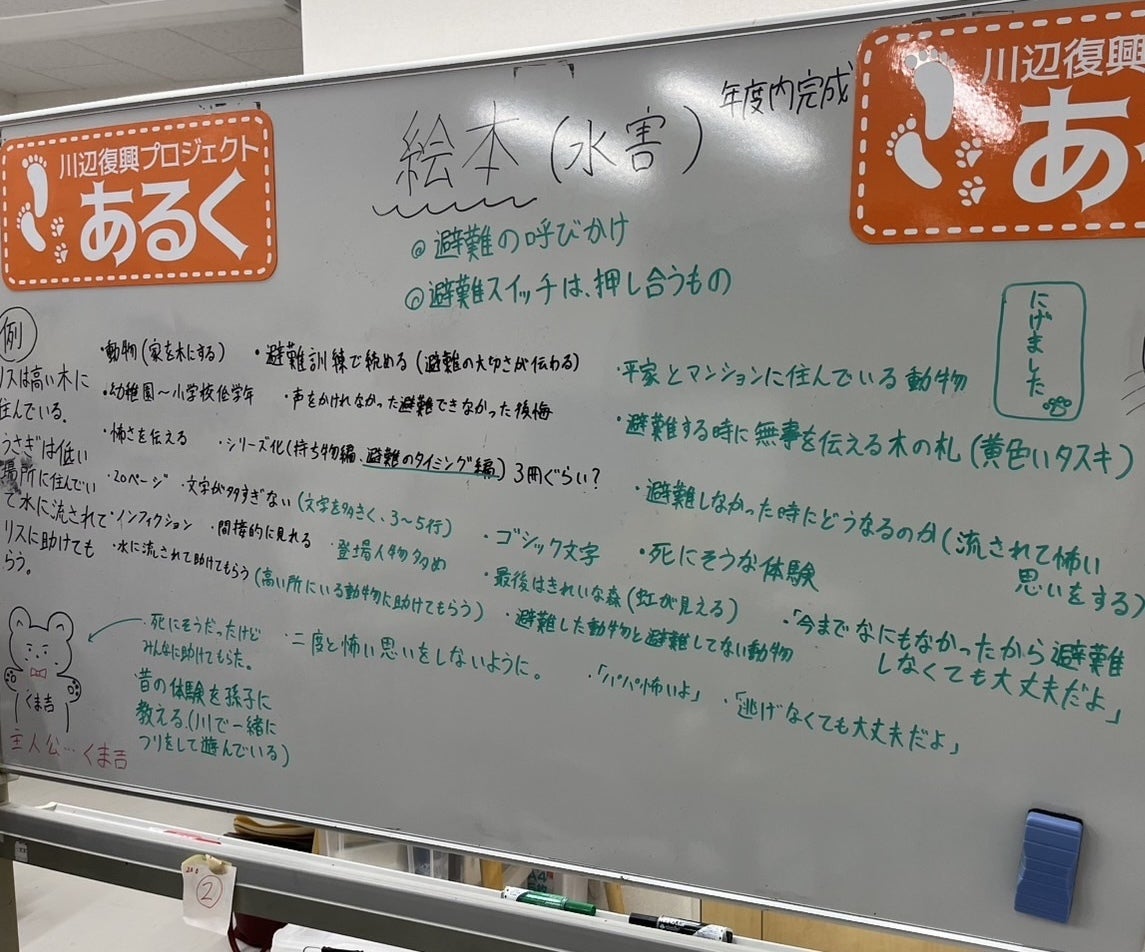 川辺復興プロジェクト
あるく
絵本(水害)
年度内完成
川辺復興
あ
◎避難の呼びかけ
◎避難スイッチは、押し合うもの
にげました
例
リスは高い木に
住んでいる.
うさぎは低い
場所に住んでい
て水に流されて
リスに助けても
らう。
・動物(家を木にする)
・避難訓練で締める(避難の大切さが伝わる)
・幼稚園〜小学校低学年
・声をかけれなかった避難できなかった後悔
・怖さを伝える
・シリーズ化(持ち物編、避難のタイミング編)3冊ぐらい?
・20ページ
・文字が多すぎない(文字を多きく、3〜5行)
・ノンフィクション
・間接的に見れる
・登場人物多め
・水に流されて助けてもらう(高い所にいる動物に助けてもらう)
・平家とマンションに住んでいる動物
・避難する時に無事を伝える木の札(黄色いタスキ)
・避難しなかった時にどうなるのか(流されて怖い
思いをする)
・ゴシック文字
・死にそうな体験
・最後はきれいな森(虹が見える)
・避難した動物と避難してない動物
・「今までなにもなかったから避難
しなくても大丈夫だよ」
・死にそうだったけど
みんなに助けてもらた。
・二度と怖い思いをしないように。
・「パパ怖いよ」
・「逃げなくても大丈夫だよ」
・昔の体験を孫子に
教える.(川で一緒に
つりをして遊んでいる)
くま吉
主人公…くま吉
②
A4